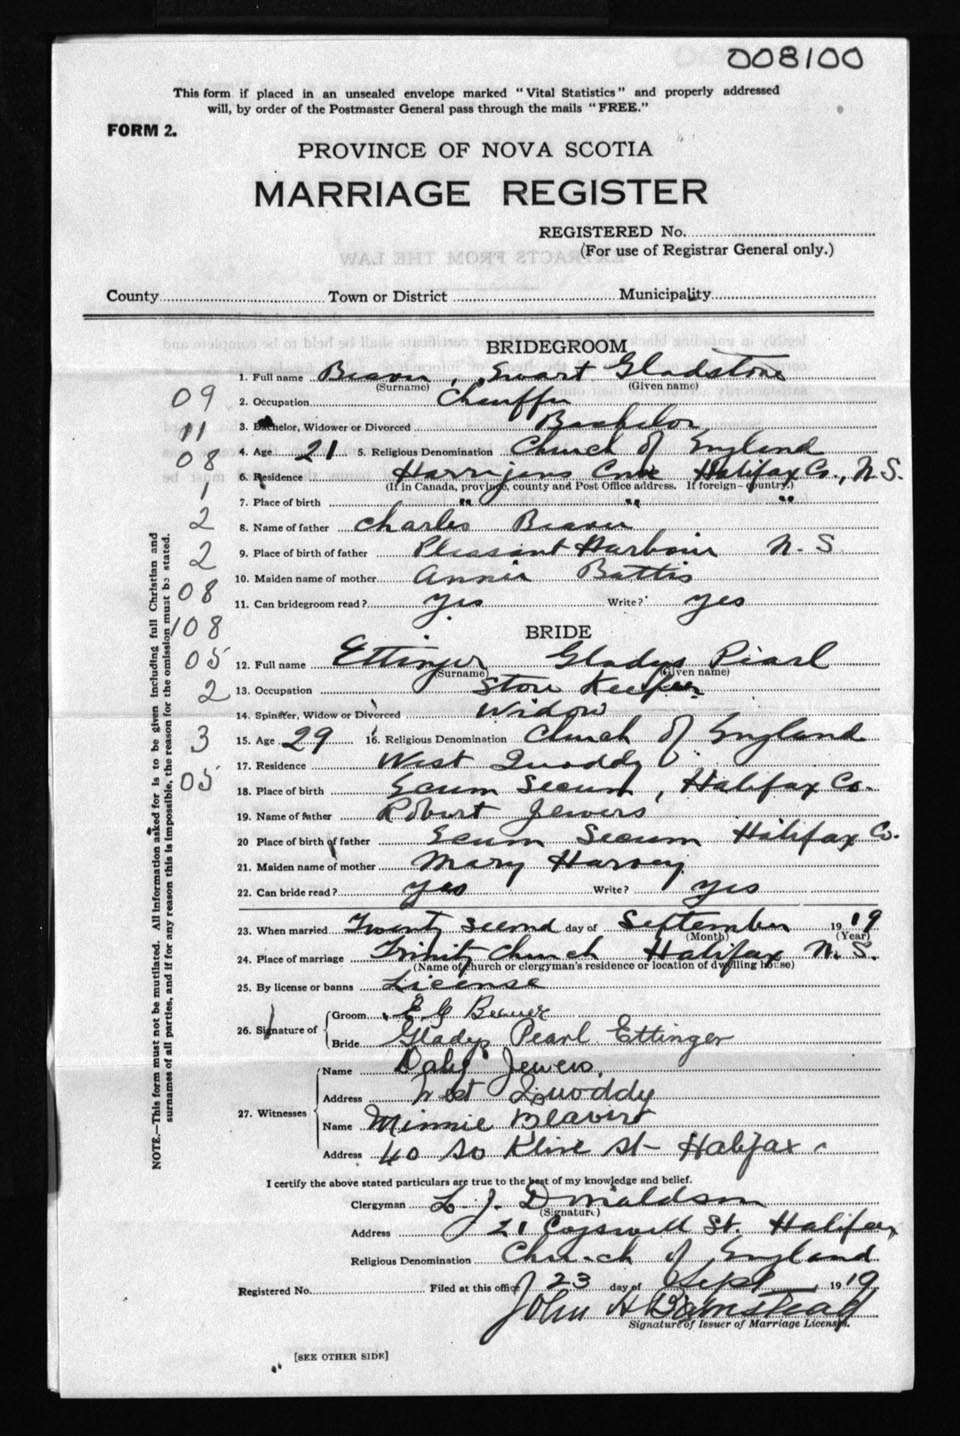 008100
This form if placed in an unsealed envelope marked "Vital Statistics" and properly addressed
will, by order of the Postmaster General pass through the mails "FREE."
FORM 2.
PROVINCE OF NOVA SCOTIA
MARRIAGE REGISTER
REGISTERED No.
(For use of Registrar General only.)
County Town or District Municipality
BRIDEGROOM
1. Full name Beaver, Ewart Gladstone
(Surname) (Given name)
09
2. Occupation Chauffer
11
3. Bachelor, Widower or Divorced Bachelor
08
4. Age 21 5. Religious Denomination Church of England
1
6. Residence Harrigens Cove Halifax Co., N.S.
(If in Canada, province, county and Post Office address. If foreign—country.)
7. Place of birth " " "
2
8. Name of father Charles Beaver
2
9. Place of birth of father Pleasant Harbour N.S.
08
10. Maiden name of mother Annie Battis
11. Can bridegroom read? yes Write? yes
108
BRIDE
05
12. Full name Ettinger Gladys Pearl
(Surname) (Given name)
2
13. Occupation Store Keeper
14. Spinster, Widow or Divorced Widow
3
15. Age 29 16. Religious Denomination Church of England
17. Residence West Quoddy
05
18. Place of birth Ecum Secum, Halifax Co.
19. Name of father Robert Jewers
20 Place of birth of father Ecum Secum Halifax Co.
21. Maiden name of mother Mary Harvey
22. Can bride read? yes Write? yes
23. When married Twenty second day of September 1919
(Month) (Year)
24. Place of marriage Trinity Church Halifax N.S.
(Name of church or clergyman's residence or location of dwelling house)
25. By license or banns License
26. Signature of
Groom E G Beaver
Bride Gladys Pearl Ettinger
27. Witnesses
Name Jewers.
Address West Quoddy
Name Minnie Beaver
Address St Halifax
I certify the above stated particulars are true to the best of my knowledge and belief.
Clergyman L. J. Donaldson
(Signature)
Address 21 Cogswell St. Halifax
Religious Denomination Church of England
Registered No. Filed at this office 23 day of Sept 1919
John H
Signature of Issuer of Marriage Licenses.
[SEE OTHER SIDE]
NOTE.—This form must not be mutilated. All information asked for is to be given including full Christian and
surnames of all parties, and if for any reason this is impossible, the reason for the omission must be stated.